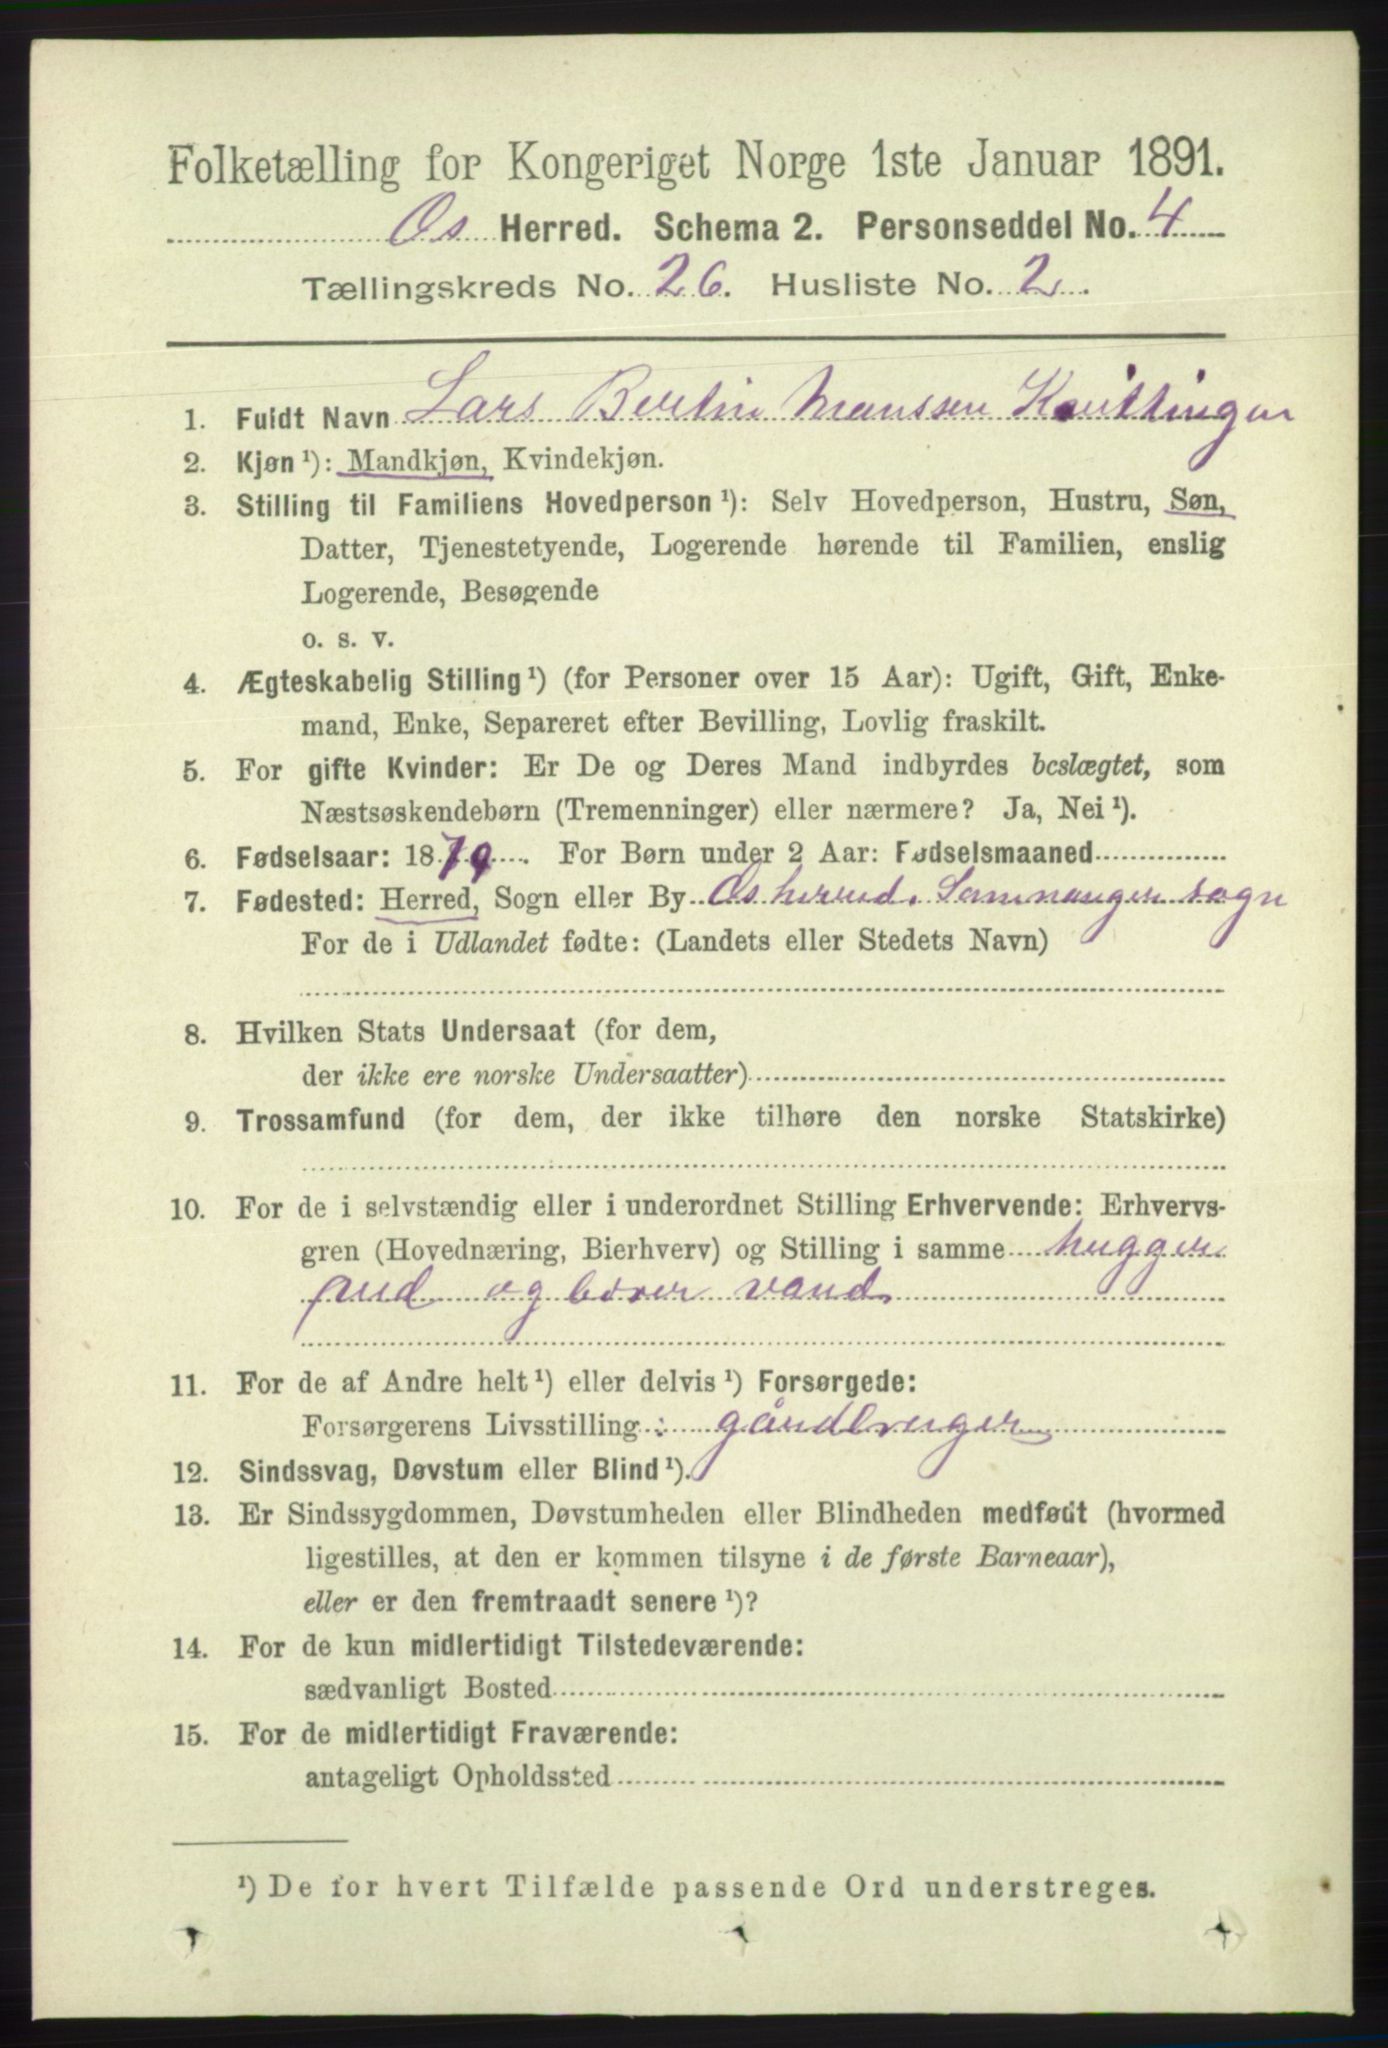 Folketælling for Kongeriget Norge 1ste Januar 1891.
Os Herred. Schema 2. Personseddel No. 4
Tællingskreds No. 26. Husliste No. 2.
1. Fuldt Navn Lars Bertin Monssen
2. Kjøn ¹): Mandkjøn, Kvindekjøn.
3. Stilling til Familiens Hovedperson ¹): Selv Hovedperson, Hustru, Søn,
Datter, Tjenestetyende, Logerende hørende til Familien, enslig
Logerende, Besøgende
o. s. v.
4. Ægteskabelig Stilling ¹) (for Personer over 15 Aar): Ugift, Gift, Enke-
mand, Enke, Separeret efter Bevilling, Lovlig fraskilt.
5. For gifte Kvinder: Er De og Deres Mand indbyrdes beslægtet, som
Næstsøskendebørn (Tremenninger) eller nærmere? Ja, Nei ¹).
6. Fødselsaar: 1879. For Børn under 2 Aar: Fødselsmaaned
7. Fødested: Herred, Sogn eller By Os herred. Samnanger sogn
For de i Udlandet fødte: (Landets eller Stedets Navn)
8. Hvilken Stats Undersaat (for dem,
der ikke ere norske Undersaatter)
9. Trossamfund (for dem, der ikke tilhøre den norske Statskirke)
10. For de i selvstændig eller i underordnet Stilling Erhvervende: Erhvervs-
gren (Hovednæring, Bierhverv) og Stilling i samme hugger
og bærer vand
11. For de af Andre helt ¹) eller delvis ¹) Forsørgede:
Forsørgerens Livsstilling: gårdbruger
12. Sindssvag, Døvstum eller Blind ¹).
13. Er Sindssygdommen, Døvstumheden eller Blindheden medfødt (hvormed
ligestilles, at den er kommen tilsyne i de første Barneaar),
eller er den fremtraadt senere ¹)?
14. For de kun midlertidigt Tilstedeværende:
sædvanligt Bosted
15. For de midlertidigt Fraværende:
antageligt Opholdssted
¹) De for hvert Tilfælde passende Ord understreges.